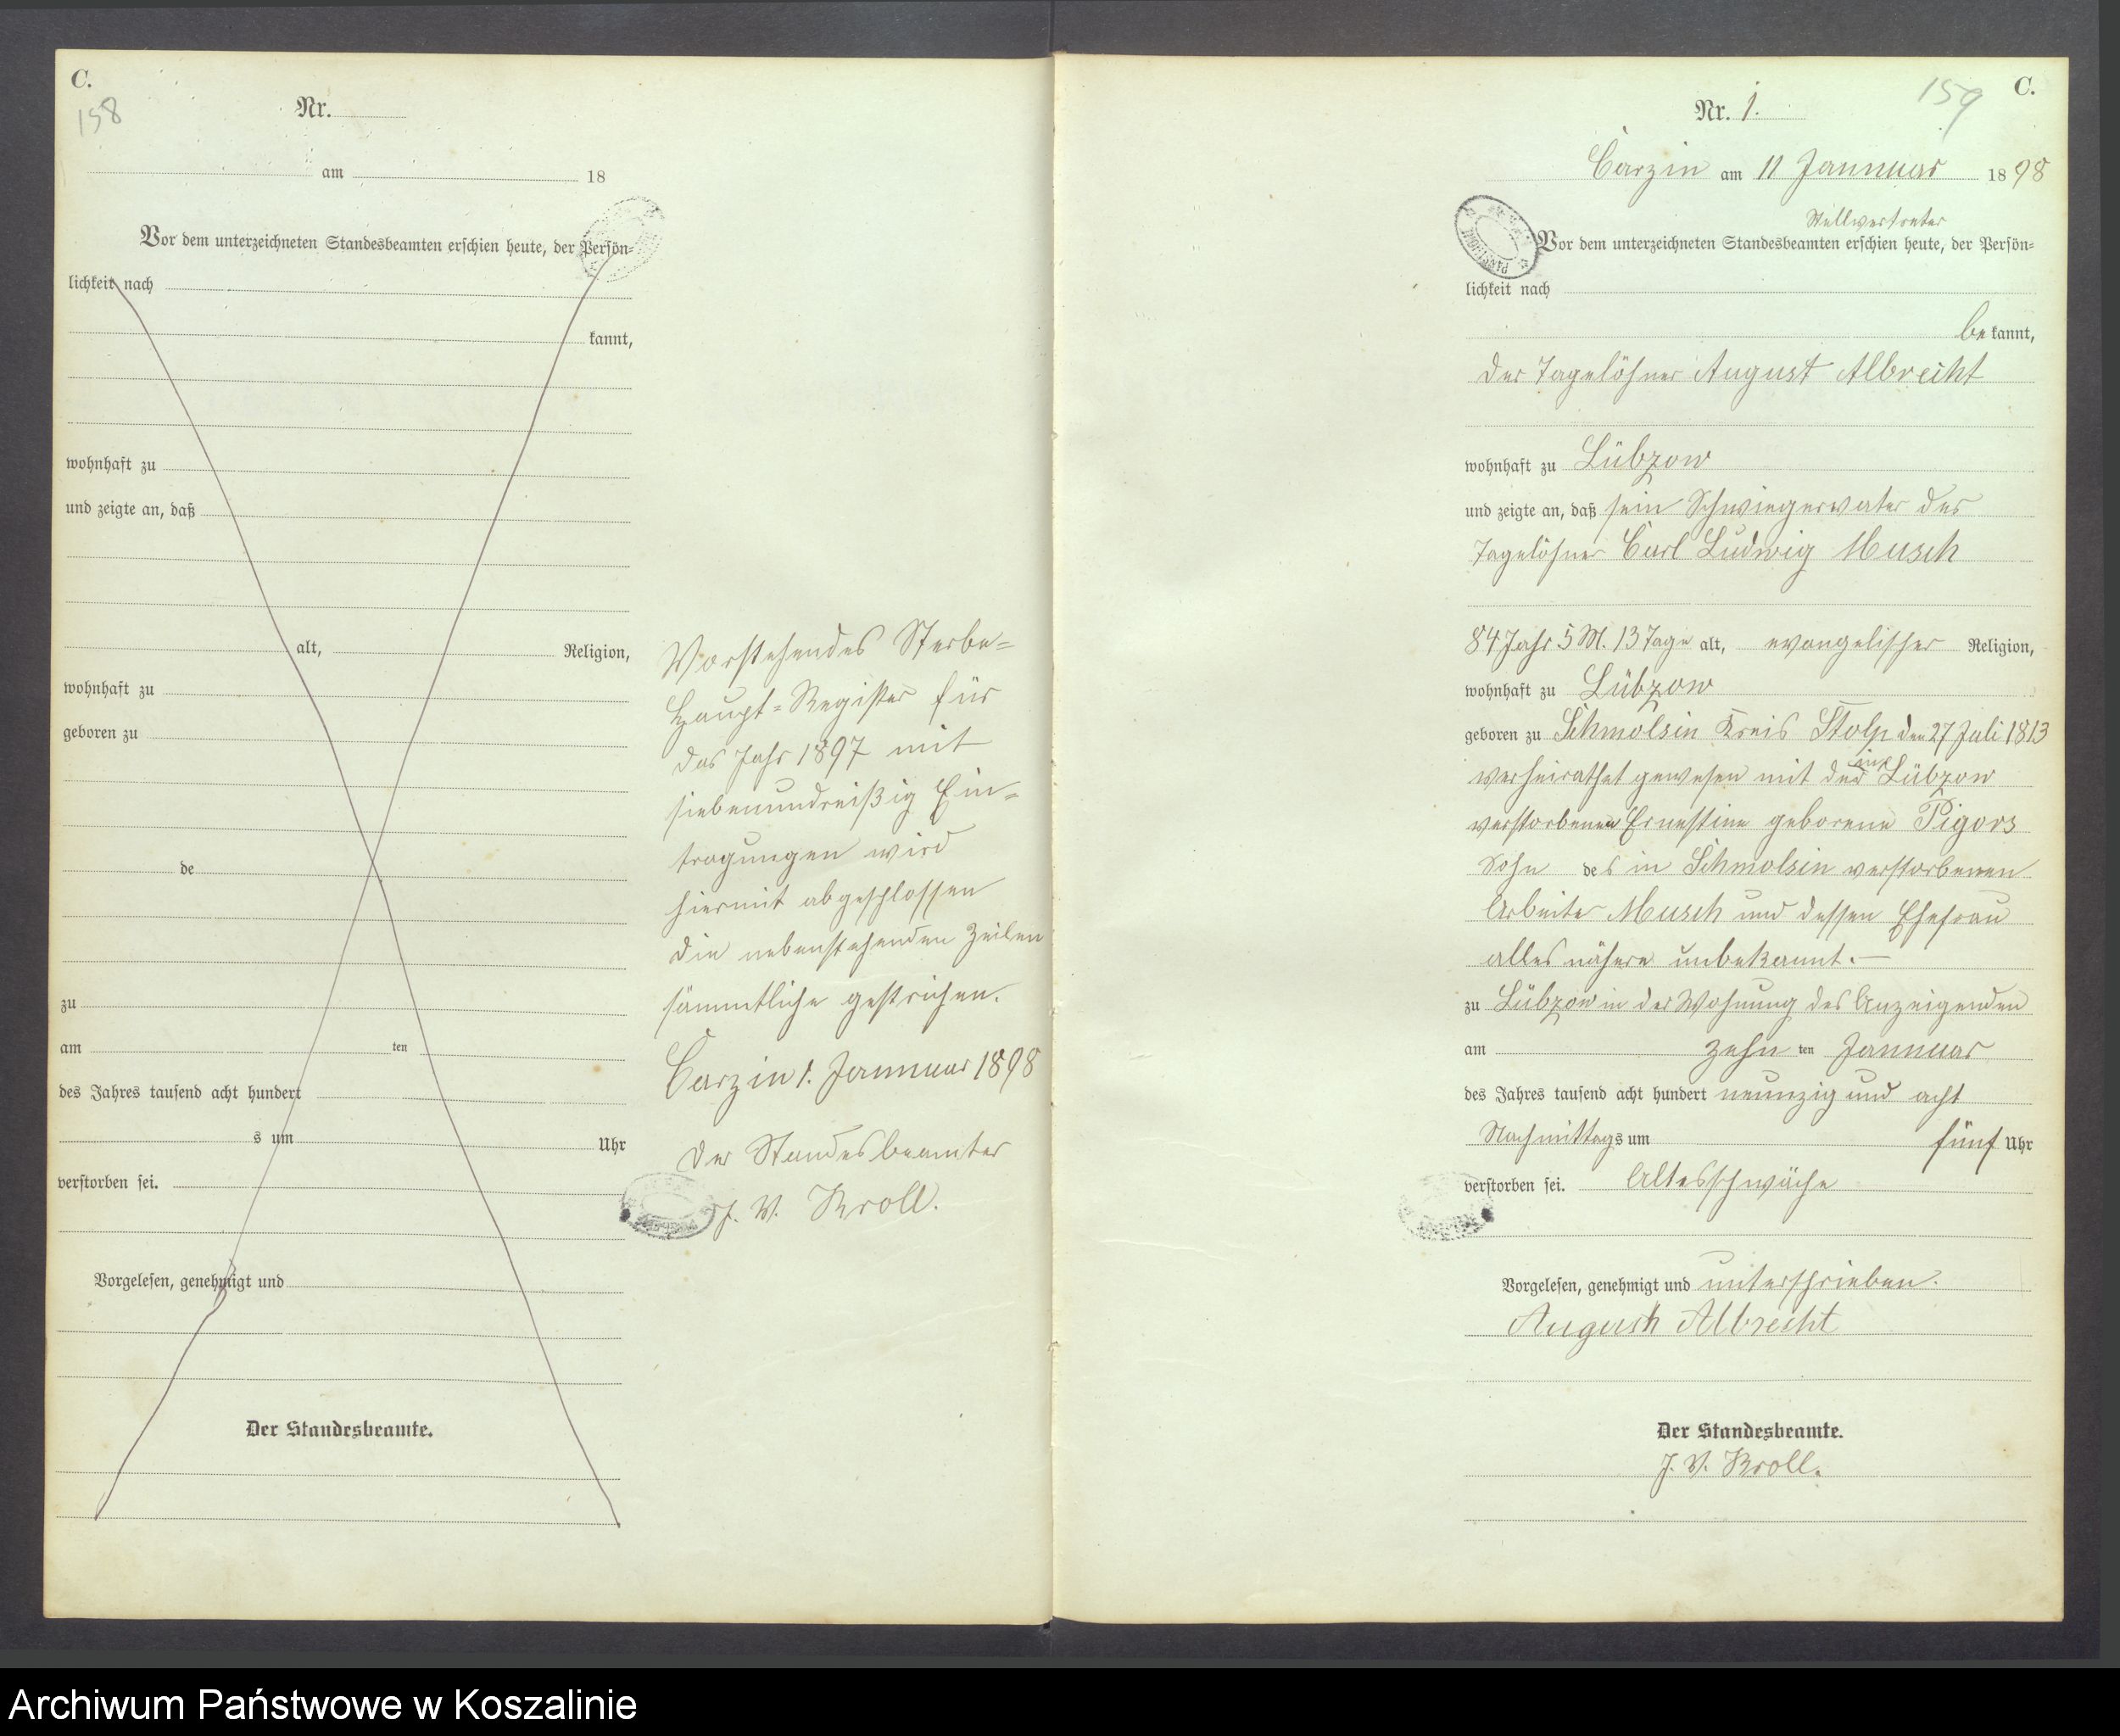 C.
158
Nr.
am 18
Vor dem unterzeichneten Standesbeamten erschien heute, der Persön-
lichkeit nach
kannt,
wohnhaft zu
und zeigte an, daß
alt, Religion,
wohnhaft zu
geboren zu
de
zu
am ten
des Jahres tausend acht hundert
s um Uhr
verstorben sei.
Vorgelesen, genehmigt und
Der Standesbeamte.
Vorstehendes Sterbe-
Haupt-Register für
das Jahr 1897 mit
siebenundreißig Ein-
tragungen wird
hiermit abgeschlossen
Die nebenstehenden Zeilen
sämmtliche gestrichen.
Carzin 1. Jannuar 1898
Der Standesbeamter
J. V. Kroll.
C.
159
Nr. 1.
Carzin am 11 Jannuar 1898
Stellvertreter
Vor dem unterzeichneten Standesbeamten erschien heute, der Persön-
lichkeit nach
bekannt,
der Tagelöhner August Albrecht
wohnhaft zu Lübzow
und zeigte an, daß sein Schwiegervater der
Tagelöhner Carl Ludwig Musch
84 Jahr 5 M. 13 Tage alt, evangelischer Religion,
wohnhaft zu Lübzow
geboren zu Schmolsin Kreis Stolp den 27 Juli 1813
verheirathet gewesen mit der in Lübzow
verstorbenen Ernestine geborene Pigors
Sohn des in Schmolsin verstorbenen
Arbeiter Musch und dessen Ehefrau
alles nähere unbekannt.—
zu Lübzow in der Wohnung des Anzeigenden
am zehn ten Jannuar
des Jahres tausend acht hundert neunzig und acht
Nachmittags um fünf Uhr
verstorben sei. Altesschwäche
Vorgelesen, genehmigt und unterschrieben.
August Albrecht
Der Standesbeamte.
J. V. Kroll.
Archiwum Państwowe w Koszalinie